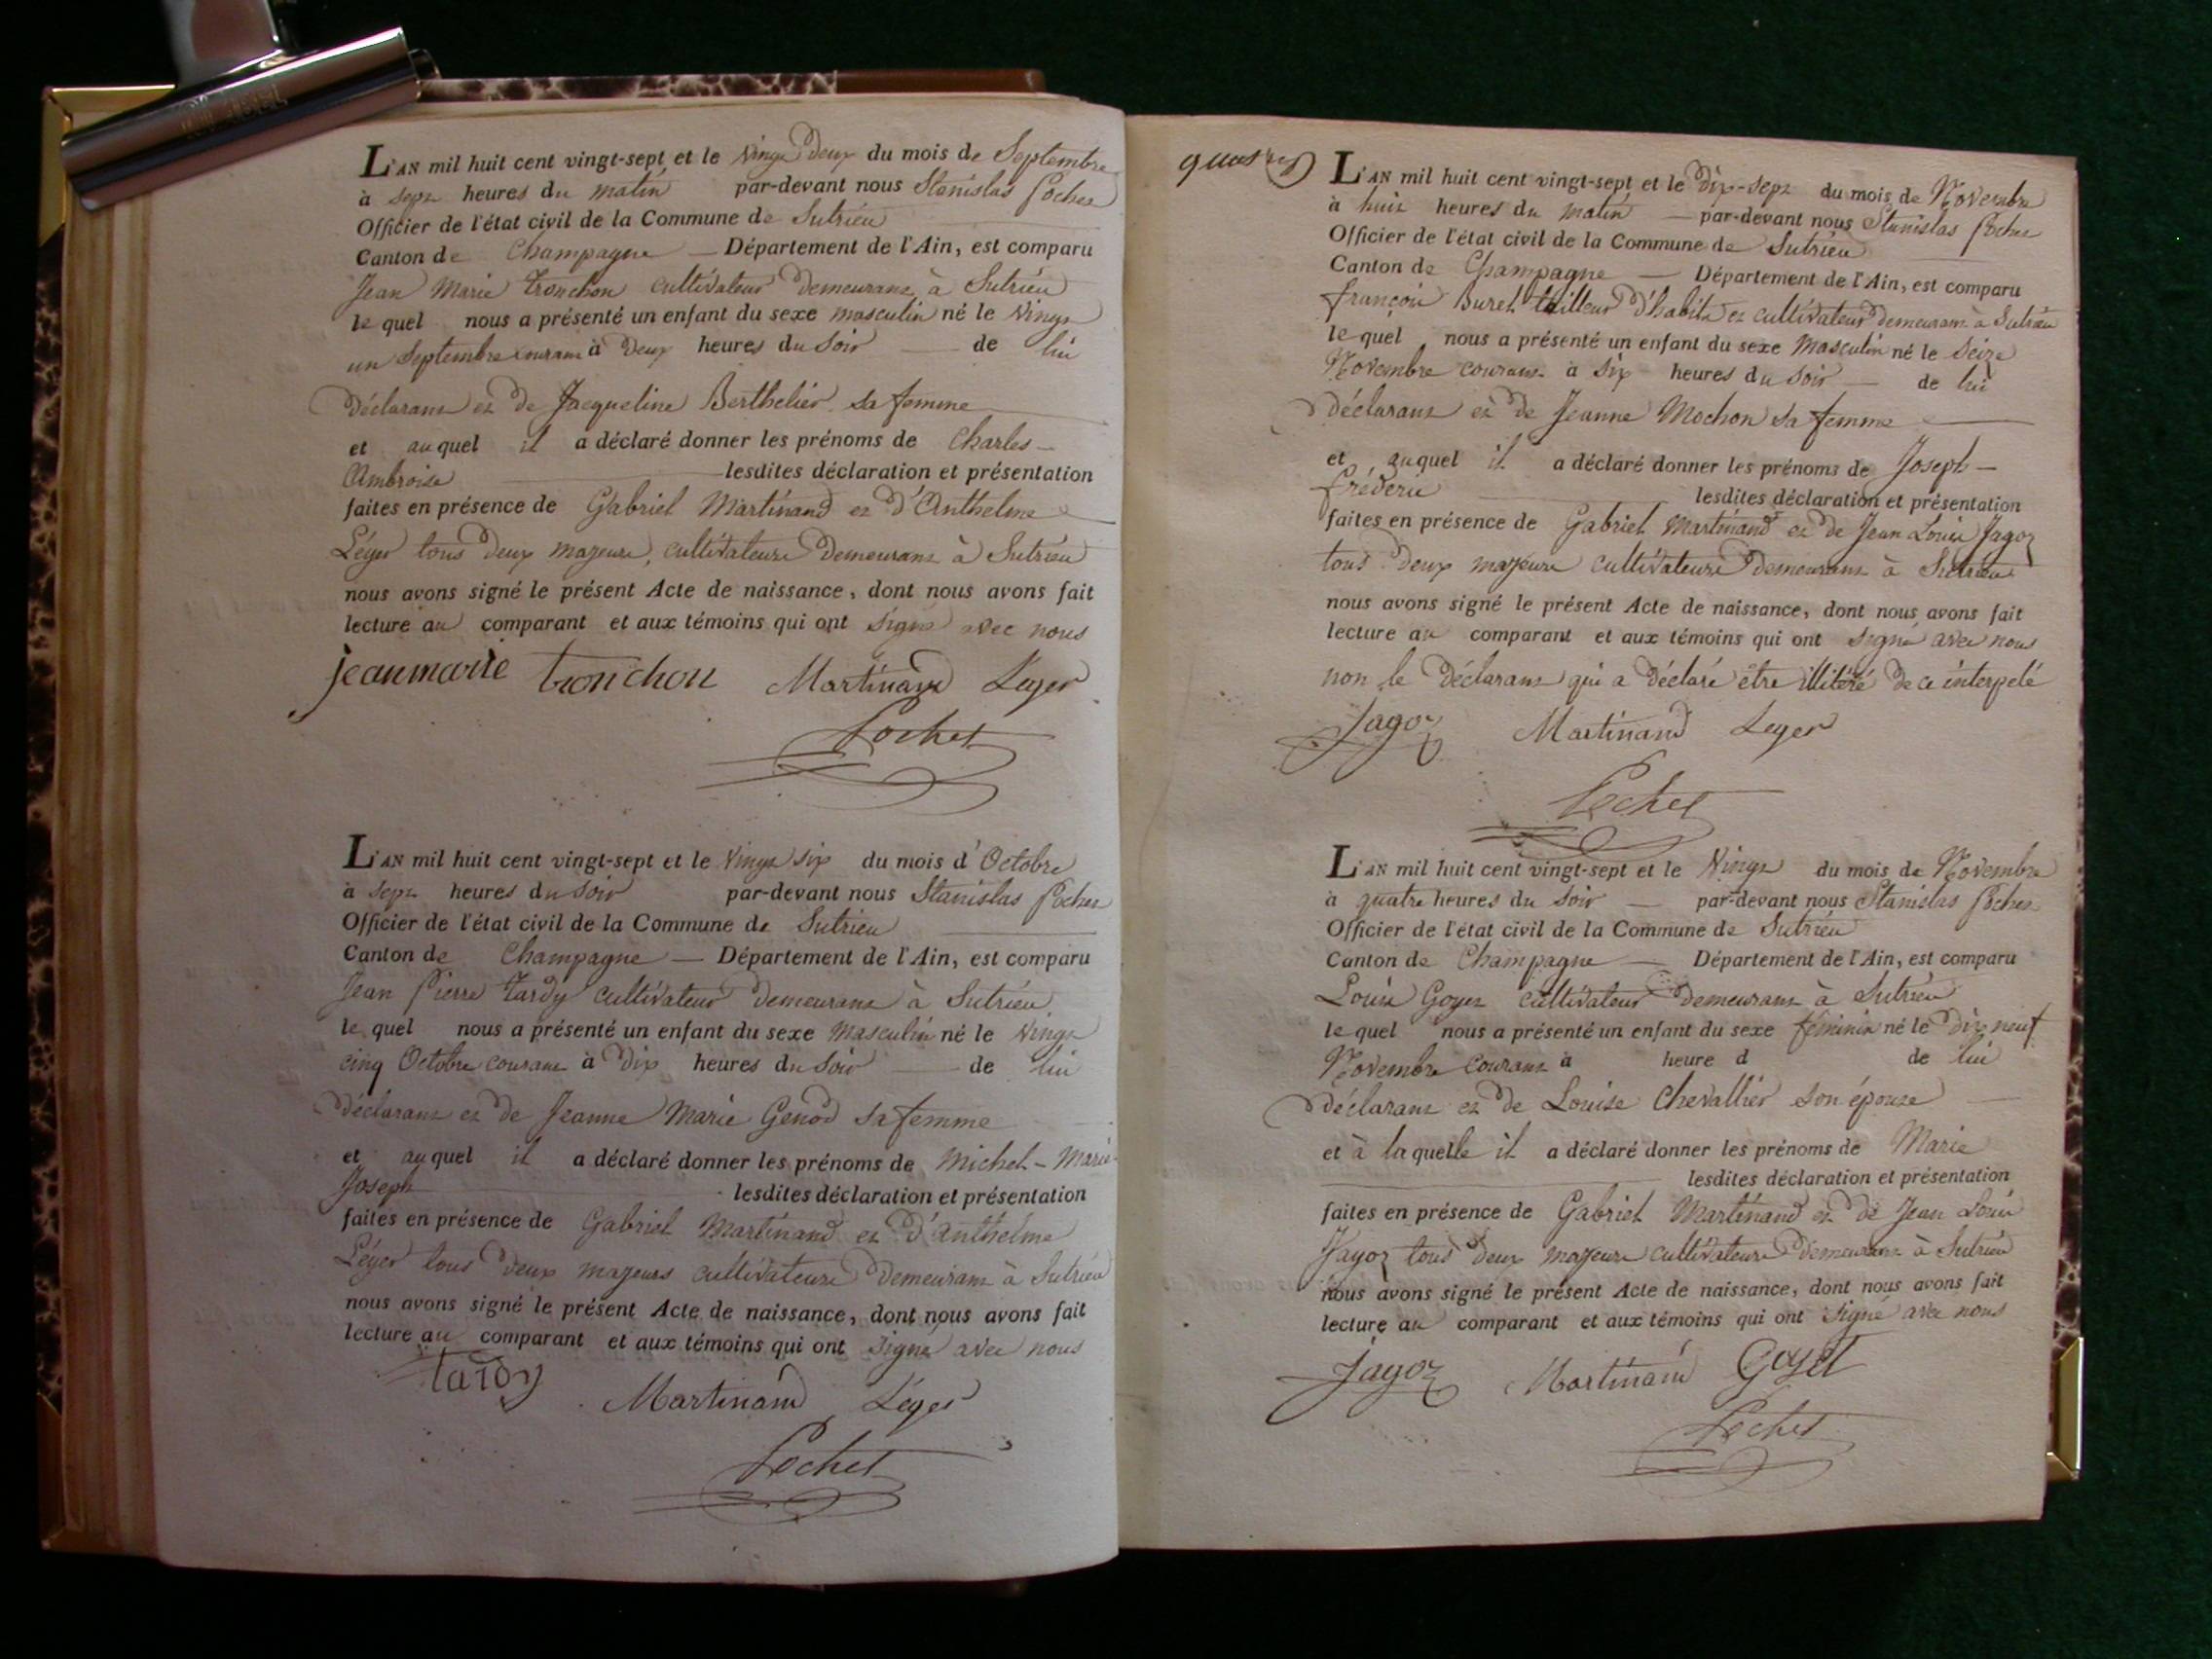 L'AN mil huit cent vingt-sept et le vingt deux du mois de Septembre
à sept heures du matin par-devant nous Stanislas Pochet
Officier de l'état civil de la Commune de Sutrieu
Canton de Champagne — Département de l'Ain, est comparu
Jean Marie tronchon cultivateur demeurant à Sutrieu
le quel nous a présenté un enfant du sexe masculin né le vingt
un Septembre courant à deux heures du soir — de lui
déclarant et de Jacqueline Berthelier sa femme
et au quel il a déclaré donner les prénoms de Charles-
Ambroise lesdites déclaration et présentation
faites en présence de Gabriel Martinand et d'Anthelme
Léger tous deux majeurs, cultivateurs demeurant à Sutrieu
nous avons signé le présent Acte de naissance, dont nous avons fait
lecture au comparant et aux témoins qui ont signé avec nous
jeanmarie tronchon Martinand Leger
Pochet
L'AN mil huit cent vingt-sept et le vingt six du mois d'Octobre
à sept heures du soir par-devant nous Stanislas Pochet
Officier de l'état civil de la Commune de Sutrieu
Canton de Champagne — Département de l'Ain, est comparu
Jean Pierre tardy cultivateur demeurant à Sutrieu
le quel nous a présenté un enfant du sexe masculin né le vingt
cinq Octobre courant à dix heures du soir — de lui
déclarant et de Jeanne Marie Genod sa femme
et au quel il a déclaré donner les prénoms de Michel-Marie-
Joseph lesdites déclaration et présentation
faites en présence de Gabriel Martinand et d'anthelme
Léger tous deux majeurs cultivateurs demeurant à Sutrieu
nous avons signé le présent Acte de naissance, dont nous avons fait
lecture au comparant et aux témoins qui ont signé avec nous
tardy Martinand Léger
Pochet
L'AN mil huit cent vingt-sept et le dix-sept du mois de Novembre
à huit heures du matin — par-devant nous Stanislas Pochet
Officier de l'état civil de la Commune de Sutrieu
Canton de Champagne — Département de l'Ain, est comparu
françois Buret tailleur d'habits et cultivateur demeurant à Sutrieu
le quel nous a présenté un enfant du sexe masculin né le seize
Novembre courant à six heures du soir — de lui
déclarant et de Jeanne Mochon sa femme
et au quel il a déclaré donner les prénoms de Joseph-
frédéric lesdites déclaration et présentation
faites en présence de Gabriel Martinand et de Jean Louis Jagoz
tous deux majeurs cultivateurs demeurant à Sutrieu
nous avons signé le présent Acte de naissance, dont nous avons fait
lecture au comparant et aux témoins qui ont signé avec nous
non le déclarant qui a déclaré être illitéré de ce interpelé
Jagoz Martinand Leger
Pochet
L'AN mil huit cent vingt-sept et le vingt du mois de Novembre
à quatre heures du soir — par-devant nous Stanislas Pochet
Officier de l'état civil de la Commune de Sutrieu
Canton de Champagne — Département de l'Ain, est comparu
Louis Goyet cultivateur demeurant à Sutrieu
le quel nous a présenté un enfant du sexe féminin né le dix neuf
Novembre courant à heure d de lui
déclarant et de Louise Chevallier son épouse
et à laquelle il a déclaré donner les prénoms de Marie
lesdites déclaration et présentation
faites en présence de Gabriel Martinand et de Jean Louis
Jagoz tous deux majeurs cultivateurs demeurant à Sutrieu
nous avons signé le présent Acte de naissance, dont nous avons fait
lecture au comparant et aux témoins qui ont signé avec nous
Jagoz Martinand Goyet
Pochet